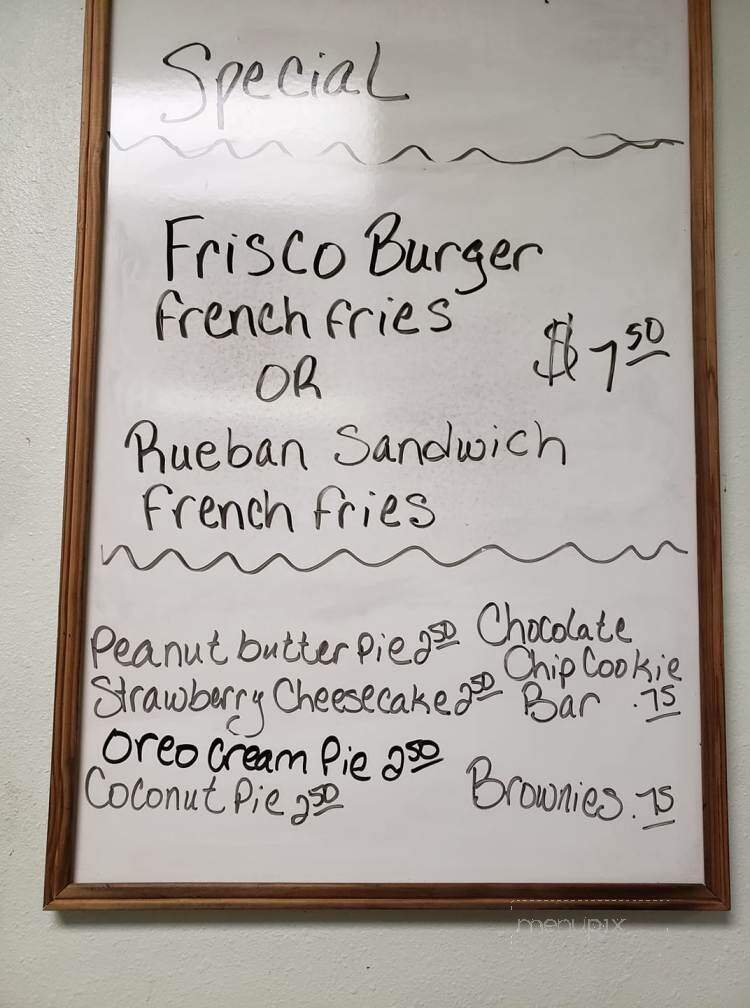 Special
Frisco Burger
French fries
OR
$7 50
Rueban Sandwich
French fries
Peanut butter Pie 2 50
Strawberry Cheesecake 2 50
Oreo Cream Pie 2 50
Coconut Pie 2 50
Chocolate
Chip Cookie
Bar .75
Brownies .75
menupix